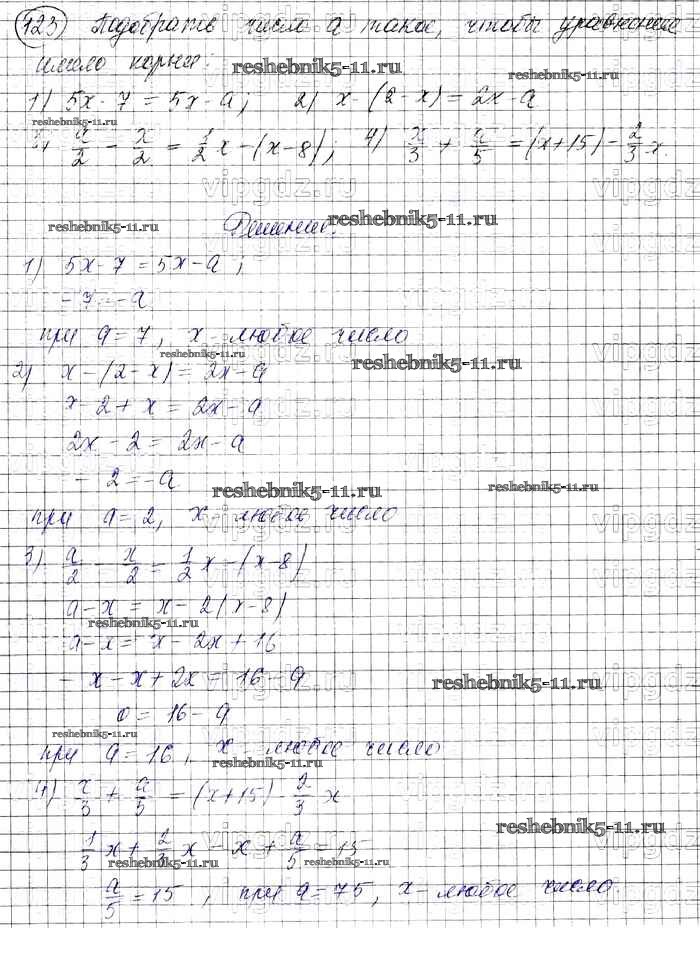 123 Подобрать число a такое, чтобы уравнение
имело корни:
1) 5x - 7 = 5x - a; 2) x - (2 - x) = 2x - a
3) a/2 - x/2 = 1/2 x - (x - 8); 4) x/3 + a/5 = (x + 15) - 2/3 x.
Решение.
1) 5x - 7 = 5x - a;
- 7 = -a
при a = 7, x - любое число
2) x - (2 - x) = 2x - a
x - 2 + x = 2x - a
2x - 2 = 2x - a
- 2 = -a
при a = 2, x - любое число
3) a/2 - x/2 = 1/2 x - (x - 8)
a - x = x - 2(x - 8)
a - x = x - 2x + 16
- x - x + 2x = 16 - a
0 = 16 - a
при a = 16, x - любое число
4) x/3 + a/5 = (x + 15) - 2/3 x
1/3 x + 2/3 x - x + a/5 = 15
a/5 = 15, при a = 75, x - любое число.
reshebnik5-11.ru
vipgdz.ru